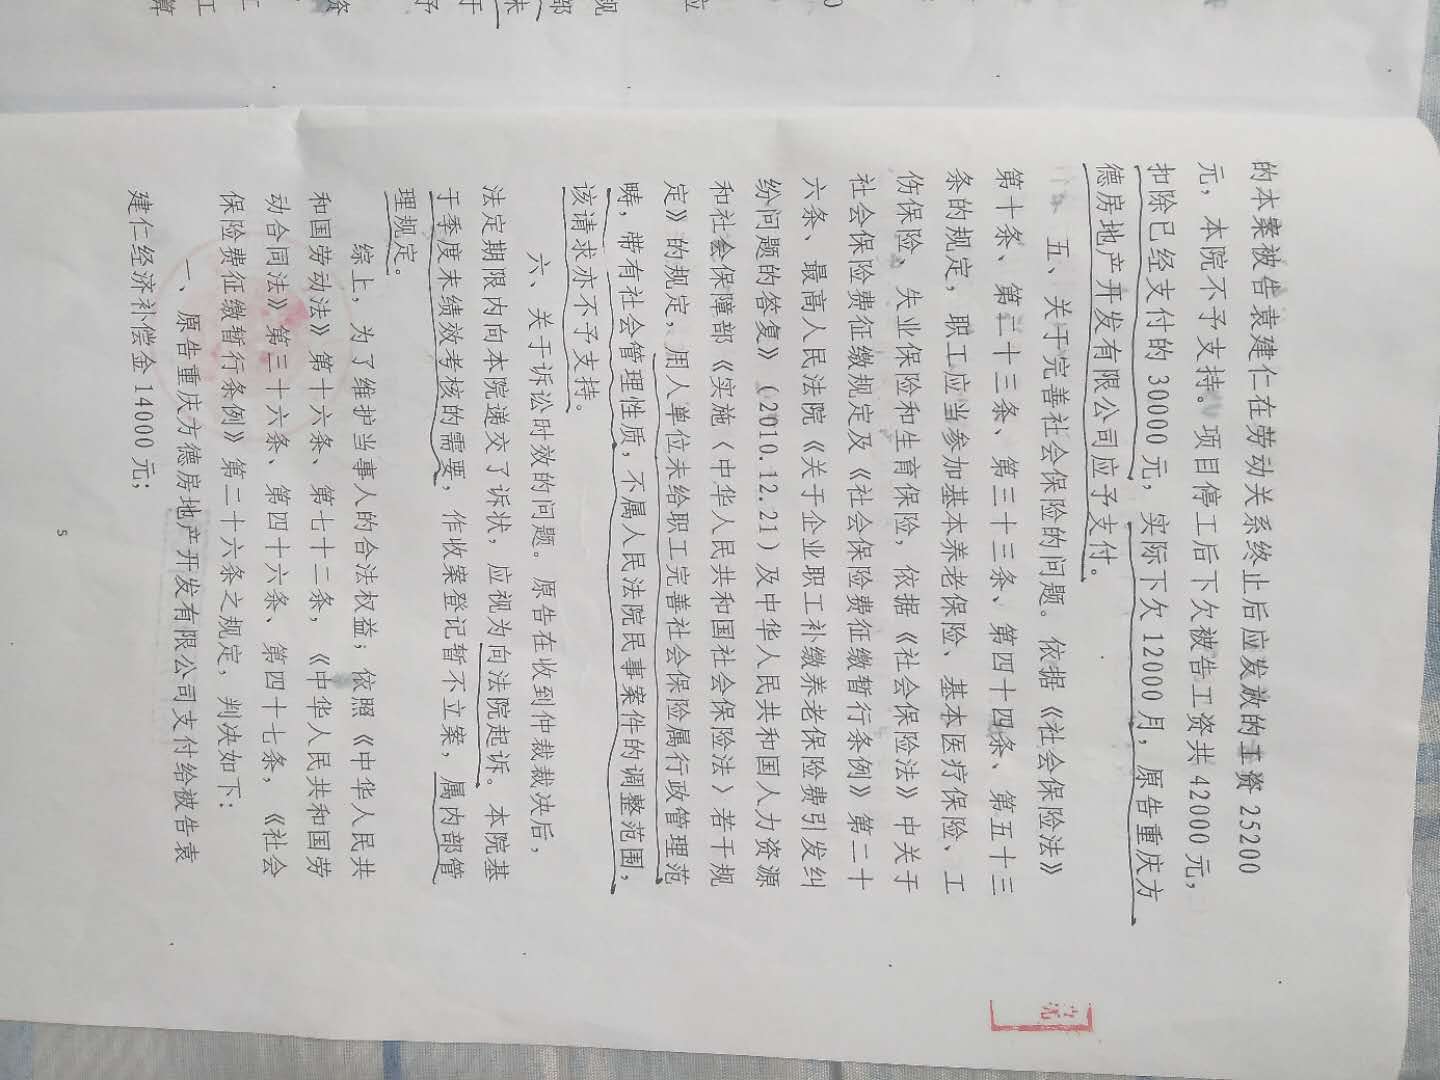 的本案被告袁建仁在劳动关系终止后应发放的工资 25200
元，本院不予支持。项目停工后下欠被告工资共 42000 元，
扣除已经支付的 30000 元，实际下欠 12000 月，原告重庆方
德房地产开发有限公司应予支付。
五、关于完善社会保险的问题。依据《社会保险法》
第十条、第二十三条、第三十三条、第四十四条、第五十三
条的规定，职工应当参加基本养老保险、基本医疗保险、工
伤保险、失业保险和生育保险，依据《社会保险法》中关于
社会保险费征缴规定及《社会保险费征缴暂行条例》第二十
六条、最高人民法院《关于企业职工补缴养老保险费引发纠
纷问题的答复》（2010.12.21）及中华人民共和国人力资源
和社会保障部《实施〈中华人民共和国社会保险法〉若干规
定》的规定，用人单位未给职工完善社会保险属行政管理范
畴，带有社会管理性质，不属人民法院民事案件的调整范围，
该请求亦不予支持。
六、关于诉讼时效的问题。原告在收到仲裁裁决后，
法定期限内向本院递交了诉状，应视为向法院起诉。本院基
于季度末绩效考核的需要，作收案登记暂不立案，属内部管
理规定。
综上，为了维护当事人的合法权益；依照《中华人民共
和国劳动法》第十六条、第七十二条，《中华人民共和国劳
动合同法》第三十六条、第四十六条、第四十七条，《社会
保险费征缴暂行条例》第二十六条之规定，判决如下：
一、原告重庆方德房地产开发有限公司支付给被告袁
建仁经济补偿金 14000 元；
5